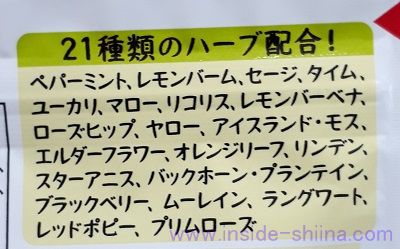 21種類のハーブ配合!
ペパーミント、レモンバーム、セージ、タイム、
ユーカリ、マロー、リコリス、レモンバーベナ、
ローズヒップ、ヤロー、アイスランド・モス、
エルダーフラワー、オレンジリーフ、リンデン、
スターアニス、バックホーン・プランテイン、
ブラックベリー、ムーレイン、ラングワート、
レッドポピー、プリムローズ
www.inside-shiina.com/